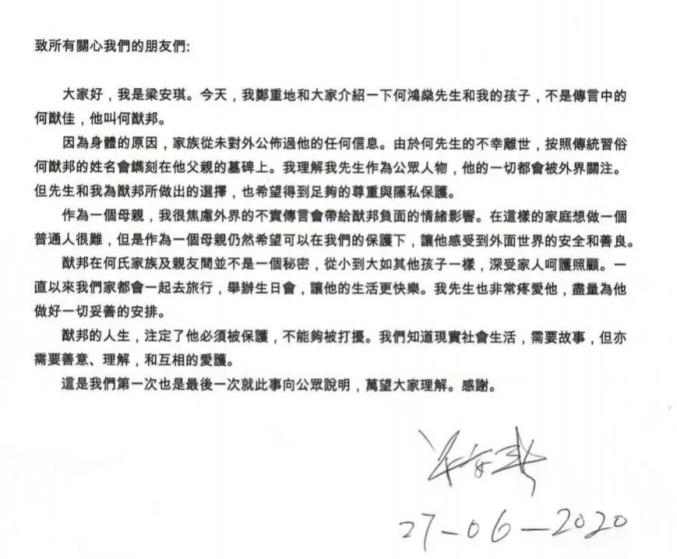 致所有關心我們的朋友們:
大家好，我是梁安琪。今天，我鄭重地和大家介紹一下何鴻燊先生和我的孩子，不是傳言中的
何猷佳，他叫何猷邦。
因為身體的原因，家族從未對外公佈過他的任何信息。由於何先生的不幸離世，按照傳統習俗
何猷邦的姓名會鐫刻在他父親的墓碑上。我理解我先生作為公眾人物，他的一切都會被外界關注。
但先生和我為猷邦所做出的選擇，也希望得到足夠的尊重與隱私保護。
作為一個母親，我很焦慮外界的不實傳言會帶給猷邦負面的情緒影響。在這樣的家庭想做一個
普通人很難，但是作為一個母親仍然希望可以在我們的保護下，讓他感受到外面世界的安全和善良。
猷邦在何氏家族及親友間並不是一個秘密，從小到大如其他孩子一樣，深受家人呵護照顧。一
直以來我們家都會一起去旅行，舉辦生日會，讓他的生活更快樂。我先生也非常疼愛他，盡量為他
做好一切妥善的安排。
猷邦的人生，注定了他必須被保護，不能夠被打擾。我們知道現實社會生活，需要故事，但亦
需要善意、理解，和互相的愛護。
這是我們第一次也是最後一次就此事向公眾說明，萬望大家理解。感謝。
梁安琪
27-06-2020